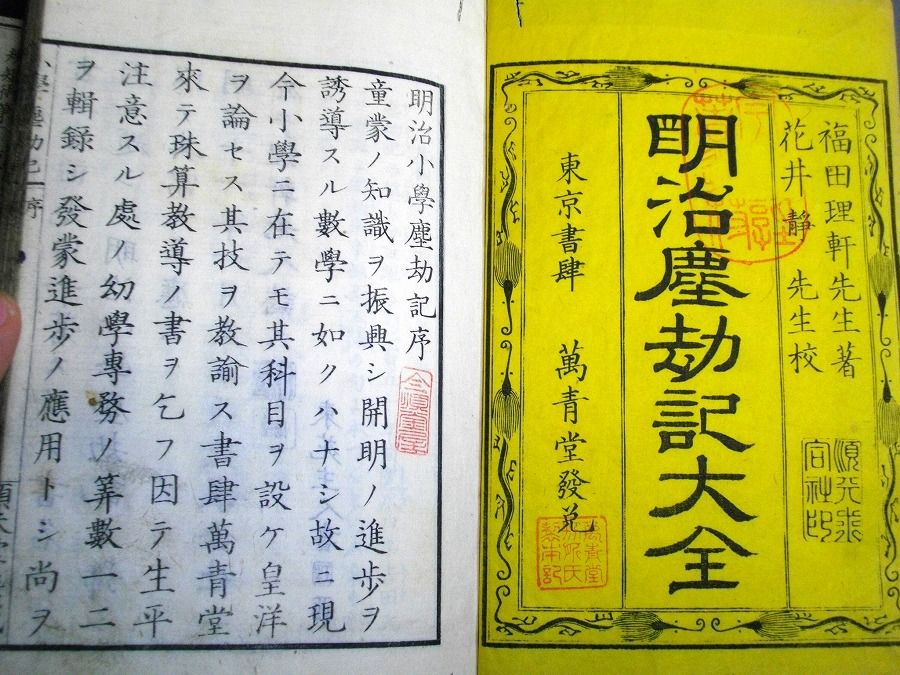 福田理軒先生著
花井静先生校
明治塵劫記大全
東京書肆 萬青堂發兌
明治小學塵劫記序
童蒙ノ知識ヲ振興シ開明ノ進歩ヲ
誘導スル數學ニ如クハナシ故ニ現
今小學ニ在テモ其科目ヲ設ケ皇洋
ヲ論セス其技ヲ教諭ス書肆萬青堂
來テ珠算教導ノ書ヲ乞フ因テ生平
注意スル處ノ幼學專務ノ筭數一二
ヲ輯録シ發蒙進歩ノ應用トシ尚ヲ